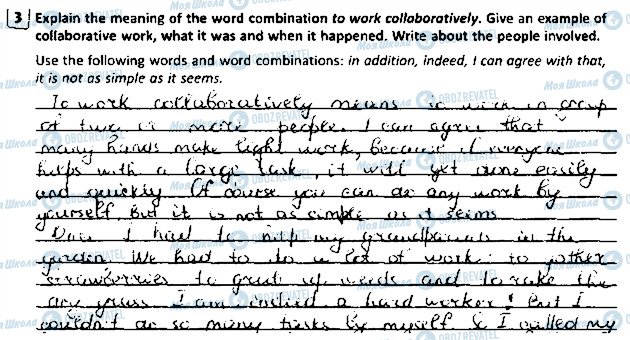 3 Explain the meaning of the word combination to work collaboratively. Give an example of
collaborative work, what it was and when it happened. Write about the people involved.
Use the following words and word combinations: in addition, indeed, I can agree with that,
it is not as simple as it seems.
To work collaboratively means to work in group
of two or more people. I can agree that
many hands make light work, because if everyone
helps with a large task, it will get done easily
and quickly. Of course you can do any work by
yourself. But it is not as simple as it seems.
I had to help my grandparents in the
garden. We had to do a lot of work: to gother
strawberries to up weeds and to rake the
dry grass. I am indeed a hard worker! But I
couldn't do so many tasks by myself. & I called my